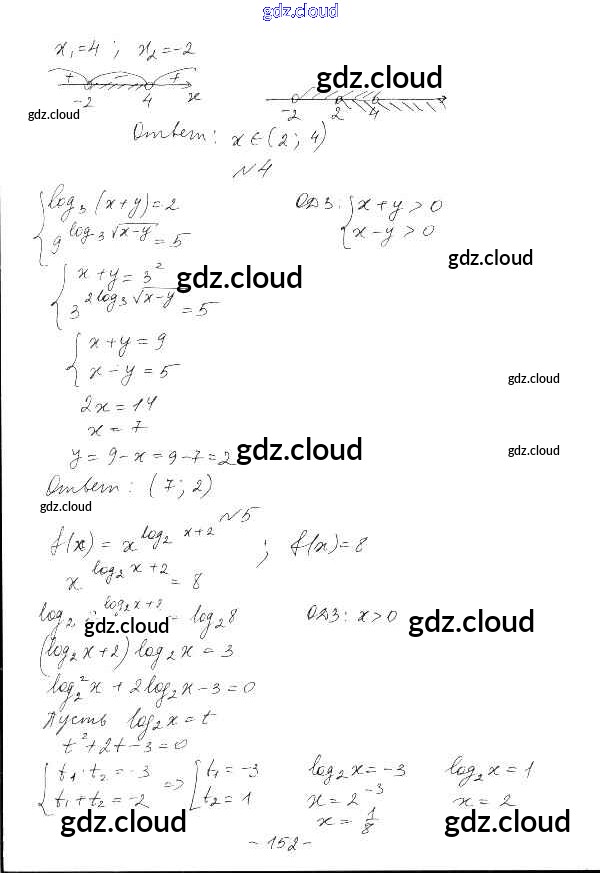 gdz.cloud
x₁=4 ; x₂=-2
+ - +
-2 4 x
-2 2 4
gdz.cloud
gdz.cloud
Ответ: x∈(2; 4)
№4
{log₃(x+y)=2
9^(log₃√(x-y))=5
ОДЗ: {x+y>0
x-y>0
gdz.cloud
{x+y=3²
3^(2log₃√(x-y))=5
gdz.cloud
{x+y=9
x-y=5
gdz.cloud
2x=14
x=7
y=9-x=9-7=2
gdz.cloud
gdz.cloud
Ответ: (7; 2)
gdz.cloud
№5
f(x)=x^(log₂x+2) ; f(x)=8
x^(log₂x+2)=8
log₂ log₂x+2 = log₂8
ОДЗ: x>0
gdz.cloud
gdz.cloud
(log₂x+2)log₂x=3
log₂²x+2log₂x-3=0
Пусть log₂x=t
t²+2t-3=0
{t₁·t₂=-3
t₁+t₂=-2
=> [t₁=-3
t₂=1
log₂x=-3
x=2⁻³
x=1/8
log₂x=1
x=2
gdz.cloud
gdz.cloud
gdz.cloud
-152-